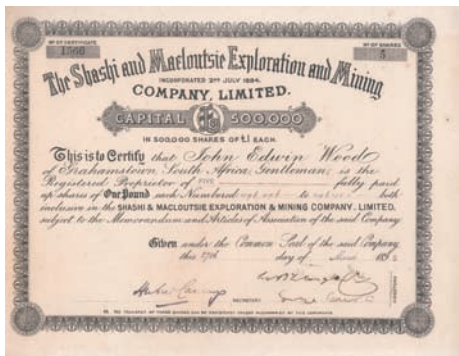 Nº OF CERTIFICATE
1566
Nº OF SHARES
5
The Shashi and Macloutsie Exploration and Mining
INCORPORATED 2ND JULY 1884.
COMPANY, LIMITED.
CAPITAL £ 500,000
IN 500,000 SHARES OF £1 EACH.
This is to Certify that John Edwin Wood
of Grahamstown, South Africa, Gentleman, is the
Registered Proprietor of five fully paid
up shares of One Pound each Numbered to both
inclusive in the SHASHI & MACLOUTSIE EXPLORATION & MINING COMPANY, LIMITED.
subject to the Memorandum and Articles of Association of the said Company
Given under the Common Seal of the said Company
this 27th day of March 189
SECRETARY